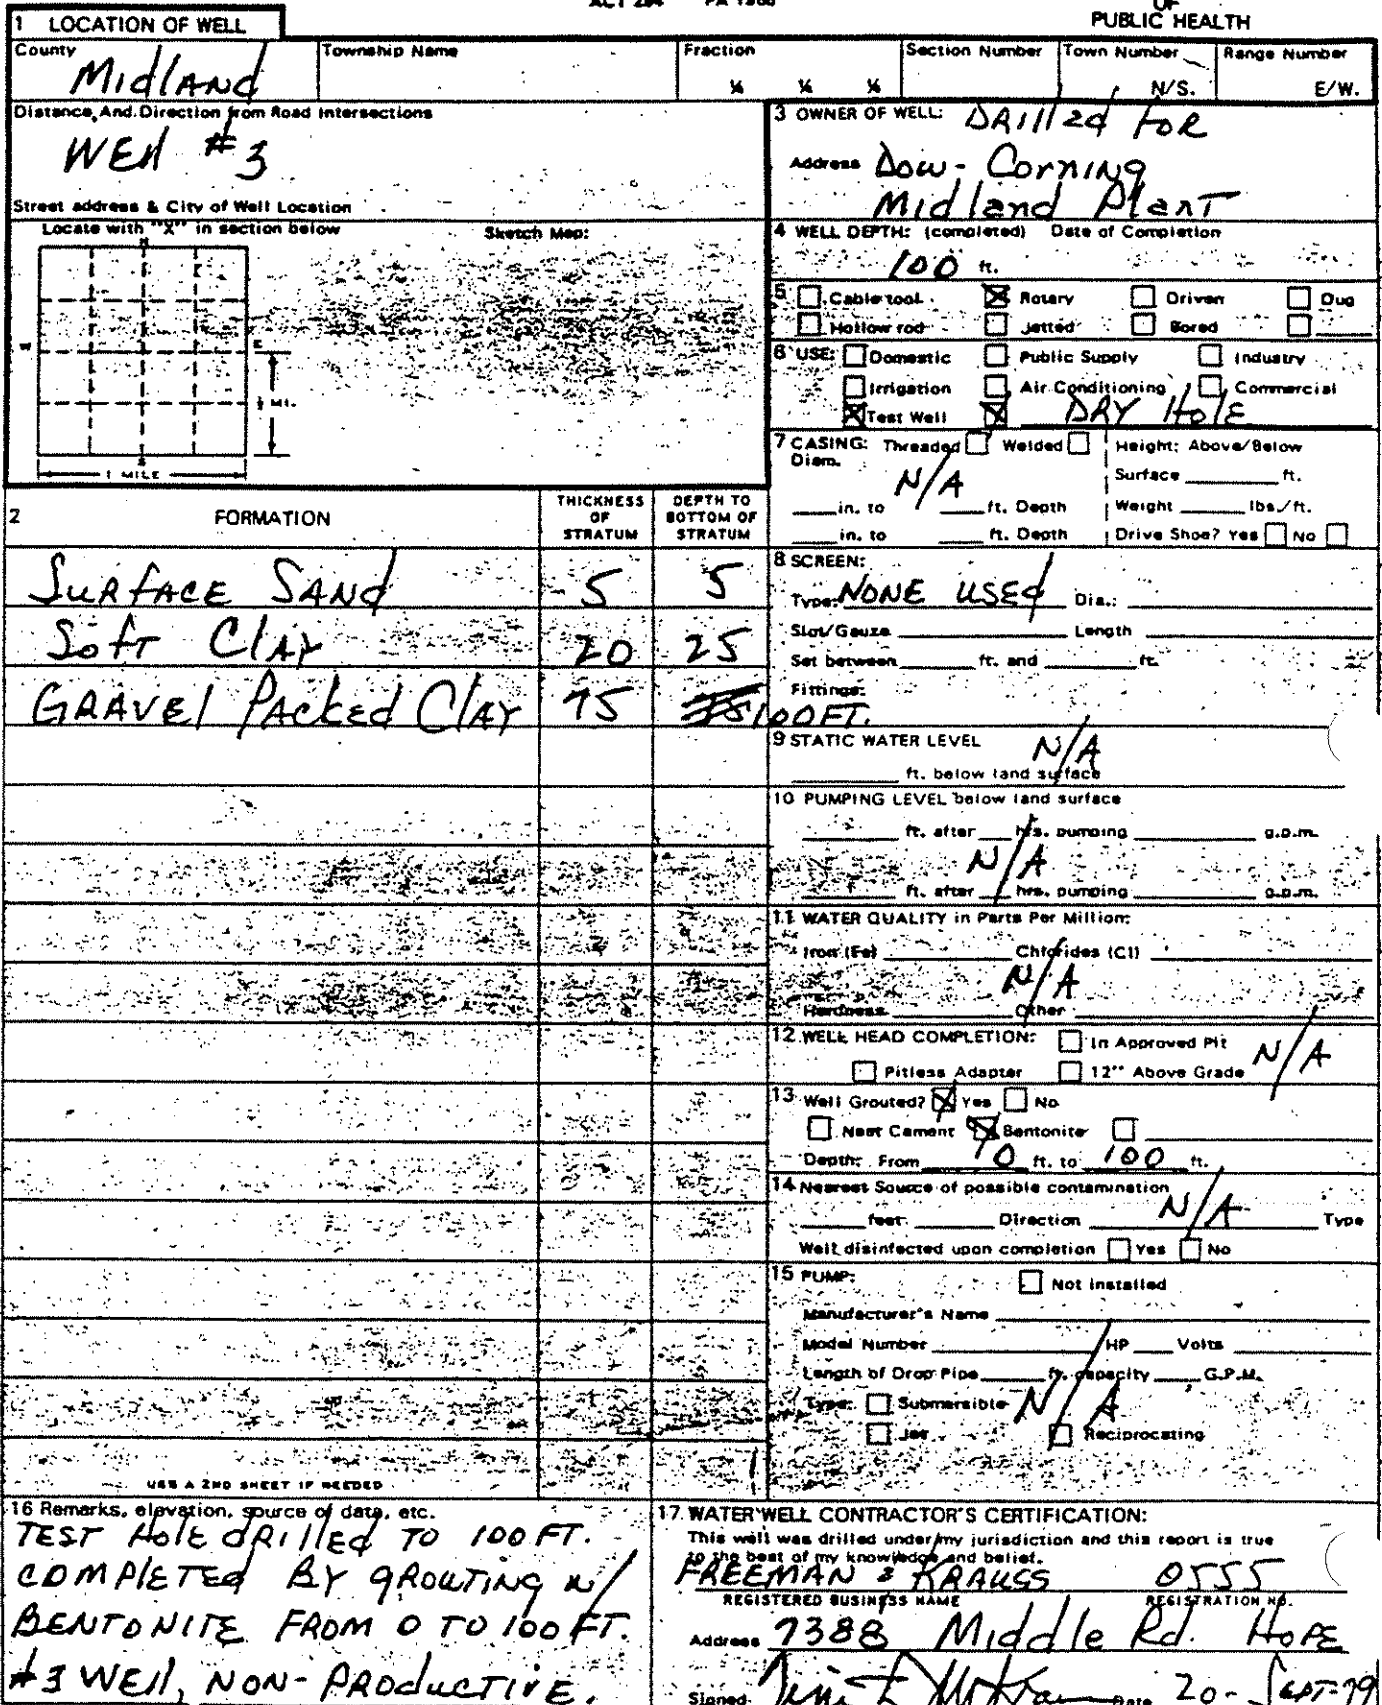 ACT 294 PA 1965
OF
PUBLIC HEALTH
1 LOCATION OF WELL
County Township Name Fraction Section Number Town Number Range Number
Midland ¼ ¼ ¼ N/S. E/W.
Distance And Direction from Road Intersections
Well #3
Street address & City of Well Location
Locate with "X" in section below Sketch Map:
N
W E
½ MI.
S
1 MILE
3 OWNER OF WELL: Drilled For
Address Dow-Corning
Midland Plant
4 WELL DEPTH: (completed) Date of Completion
100 ft.
5 Cable tool Rotary Driven Dug
Hollow rod Jetted Bored
6 USE: Domestic Public Supply Industry
Irrigation Air Conditioning Commercial
Test Well DRY HolE
7 CASING: Threaded Welded Height: Above/Below
Diam. Surface ft.
N/A
in. to ft. Depth Weight lbs./ft.
in. to ft. Depth Drive Shoe? Yes No
2 FORMATION THICKNESS OF STRATUM DEPTH TO BOTTOM OF STRATUM
SURFACE SANd 5 5
Soft Clay 20 25
GRAVEl PAcked ClAY 75 100FT.
USE A 2ND SHEET IF NEEDED
8 SCREEN:
Type: NONE USEd Dia.:
Slot/Gauze Length
Set between ft. and ft.
Fittings:
9 STATIC WATER LEVEL N/A
ft. below land surface
10 PUMPING LEVEL below land surface
ft. after hrs. pumping g.p.m.
N/A
ft. after hrs. pumping g.p.m.
11 WATER QUALITY in Parts Per Million:
Iron (Fe) Chlorides (Cl)
N/A
Hardness Other
12 WELL HEAD COMPLETION: In Approved Pit N/A
Pitless Adapter 12" Above Grade
13 Well Grouted? Yes No
Neat Cement Bentonite
Depth: From 0 ft. to 100 ft.
14 Nearest Source of possible contamination
feet Direction N/A Type
Well disinfected upon completion Yes No
15 PUMP: Not installed
Manufacturer's Name
Model Number HP Volts
Length of Drop Pipe ft. capacity G.P.M.
Type: Submersible N/A
Jet Reciprocating
16 Remarks, elevation, source of data, etc.
TEST HolE dRIllEd TO 100 FT.
COMPlETEd BY gROUTING w/
BENTONITE FROM 0 TO 100 FT.
#3 WEll, NON-PROductIVE.
17 WATER WELL CONTRACTOR'S CERTIFICATION:
This well was drilled under my jurisdiction and this report is true
to the best of my knowledge and belief.
FREEMAN & KRAUSS 0555
REGISTERED BUSINESS NAME REGISTRATION NO.
Address 7388 Middle Rd. HOPE
Signed Date 20-SEPT-79